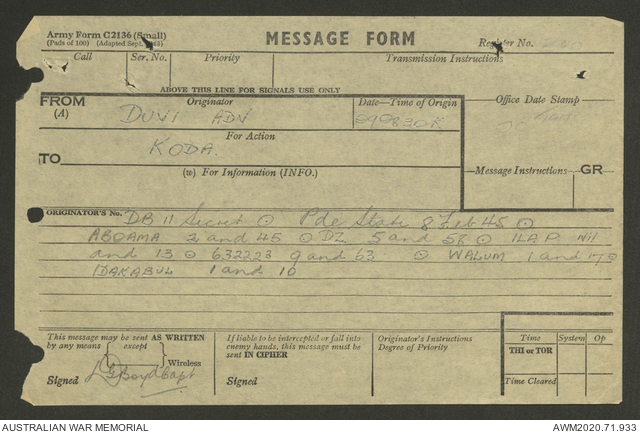 Army Form C2136 (Small)
(Pads of 100) (Adapted Sept.
MESSAGE FORM
Register No.
Call Ser. No. Priority Transmission Instructions
ABOVE THIS LINE FOR SIGNALS USE ONLY
FROM
(A)
Originator
DUVI ADV
Date—Time of Origin
090830K
Office Date Stamp
For Action
TO
KODA.
(w) For Information (INFO.)
Message Instructions GR
ORIGINATOR'S No. DB 11 Secret ⊙ Pde State 8 Feb 45 ⊙
ABOAMA 2 and 45 ⊙ DZ 5 and 58 ⊙ ILAP Nil
and 13 ⊙ 632223 9 and 63 ⊙ WALUM 1 and
IDAKABUL 1 and 10
This message may be sent AS WRITTEN
by any means except
Wireless
Signed L G Boyd Capt
If liable to be intercepted or fall into
enemy hands, this message must be
sent IN CIPHER
Signed
Originator's Instructions
Degree of Priority
Time System Op
THI or TOR
Time Cleared
AUSTRALIAN WAR MEMORIAL
AWM2020.71.933